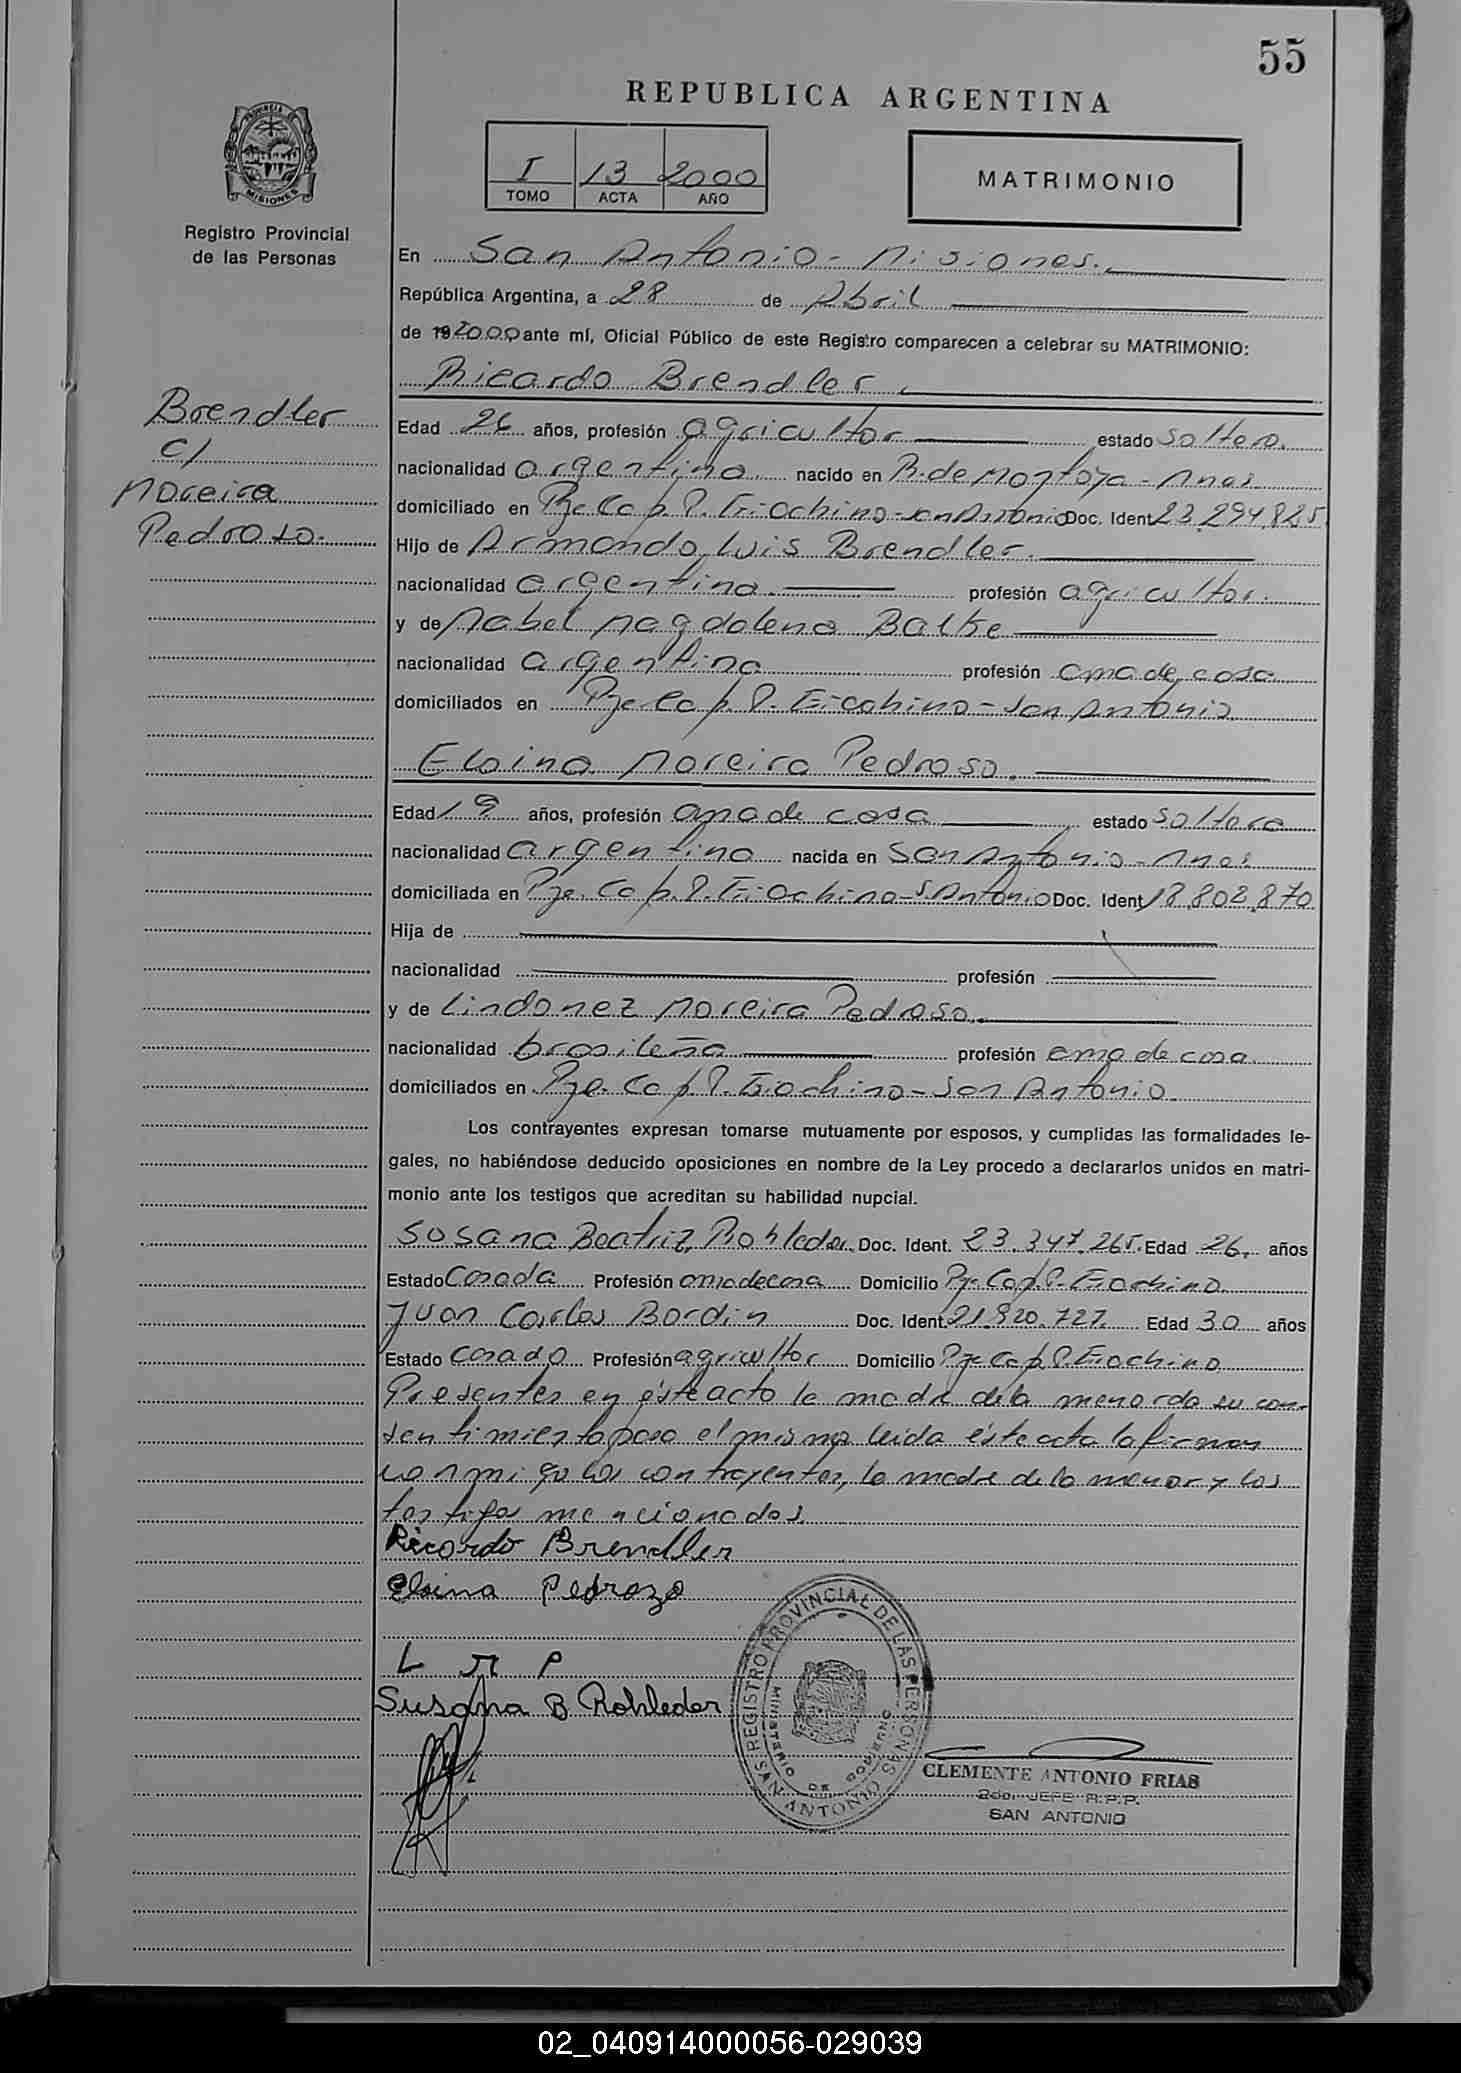 55
REPUBLICA ARGENTINA
PROVINCIA DE MISIONES
Registro Provincial
de las Personas
I 13 2000
TOMO ACTA AÑO
MATRIMONIO
En San Antonio - Misiones.
República Argentina, a 28 de Abril
de 192000 ante mí, Oficial Público de este Registro comparecen a celebrar su MATRIMONIO:
Ricardo Brendler
Brendler
c/
Moreira
Pedroso.
Edad 26 años, profesión agricultor estado soltero.
nacionalidad argentina nacido en R. de Montoya - Mnes.
domiciliado en Pje. Cap. P. Giachino - San Antonio Doc. Ident 23.294.825
Hijo de Armando Luis Brendler.
nacionalidad argentina. profesión agricultor.
y de Mabel Magdalena Balke
nacionalidad argentina profesión ama de casa
domiciliados en Pje. Cap. P. Giachino - San Antonio
Elaina Moreira Pedroso.
Edad 19 años, profesión ama de casa estado soltera
nacionalidad argentina nacida en San Antonio - Mnes
domiciliada en Pje. Cap. P. Giachino - S. Antonio Doc. Ident 18.802.870
Hija de
nacionalidad profesión
y de Lindonez Moreira Pedroso.
nacionalidad brasileña profesión ama de casa
domiciliados en Pje. Cap. P. Giachino - San Antonio.
Los contrayentes expresan tomarse mutuamente por esposos, y cumplidas las formalidades le-
gales, no habiéndose deducido oposiciones en nombre de la Ley procedo a declararlos unidos en matri-
monio ante los testigos que acreditan su habilidad nupcial.
Sosana Beatriz Rohleder. Doc. Ident. 23.347.265. Edad 26. años
Estado Casada Profesión ama de casa Domicilio Pje. Cap. P. Giachino.
Juan Carlos Bordin Doc. Ident. 21.820.727. Edad 30 años
Estado casado Profesión agricultor Domicilio Pje Cap P. Giachino
Presentes en éste acto la madre de la menor da su con-
sentimiento para el mismo, leida éste acta la firman
conmigo los contrayentes, la madre de la menor y los
testigos mencionados.
Ricardo Brendler
Elaina Pedrozo
L M P
Susana B Rohleder
REGISTRO PROVINCIAL DE LAS PERSONAS
MINISTERIO DE GOBIERNO
SAN ANTONIO
CLEMENTE ANTONIO FRIAS
2do. JEFE R.P.P.
SAN ANTONIO
02_040914000056-029039